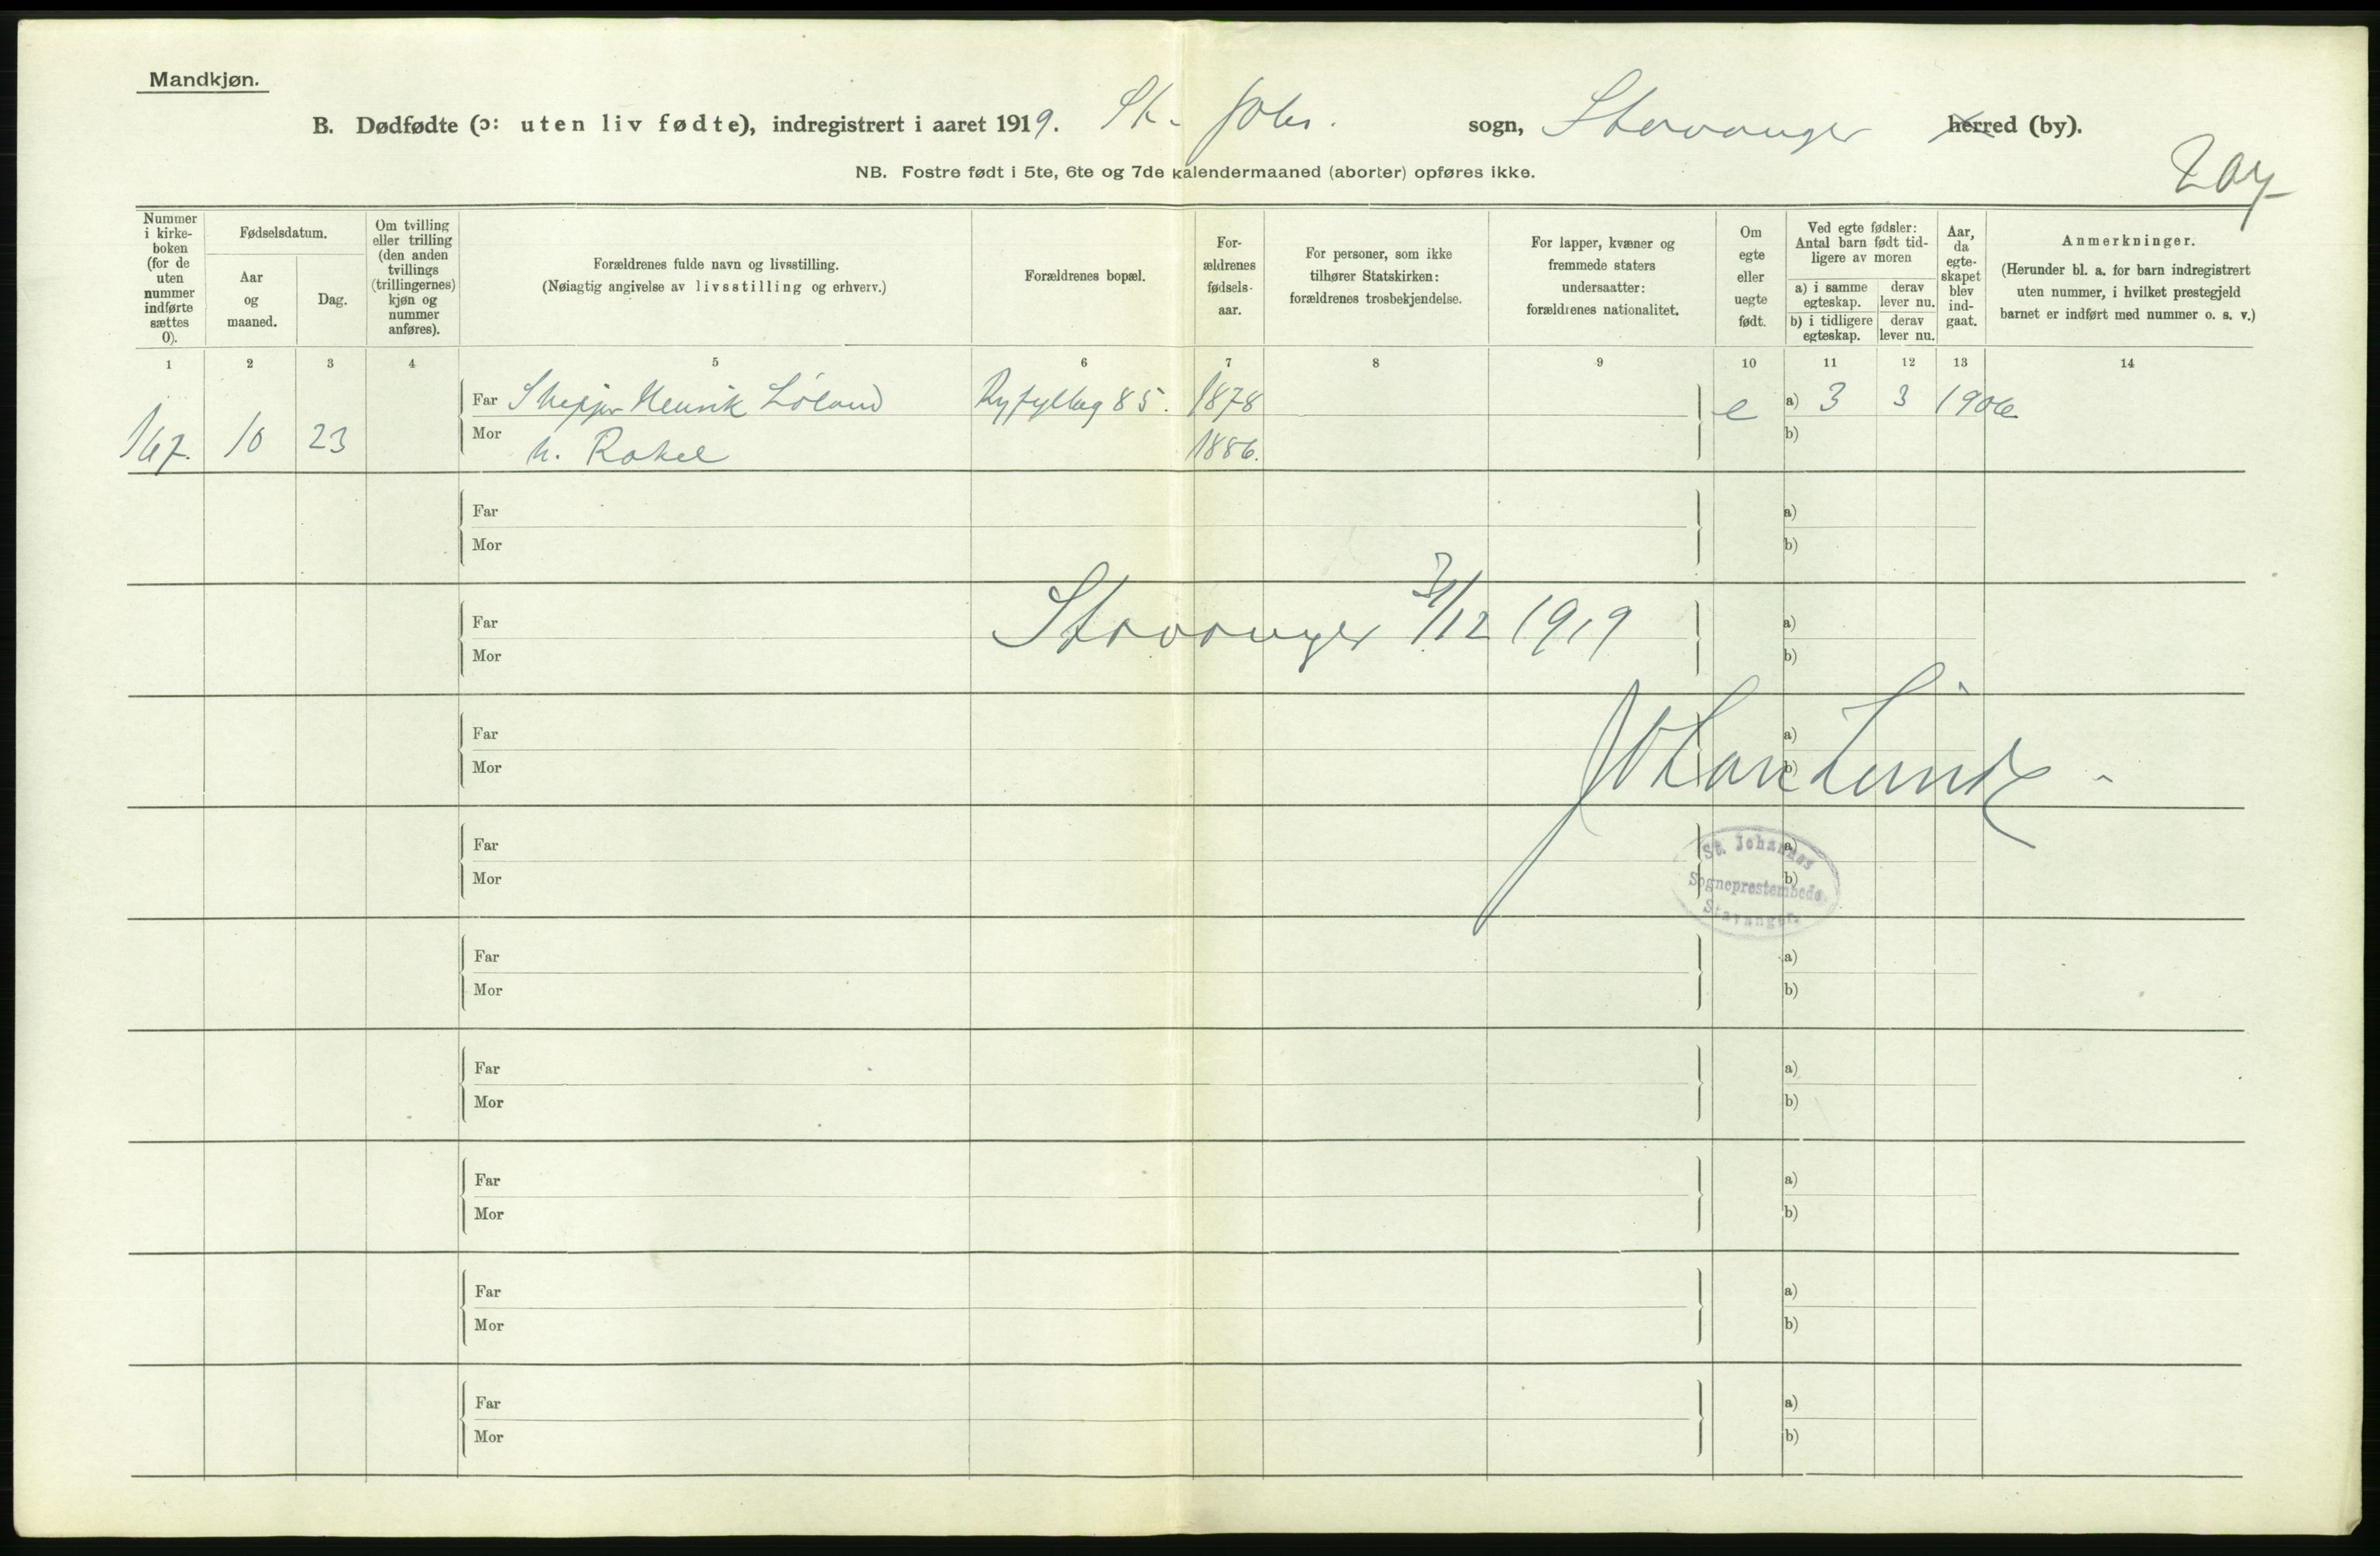 Mandkjøn.
B. Dødfødte (ɔ: uten liv fødte), indregistrert i aaret 1919. St. Johs. sogn, Stavanger herred (by).
NB. Fostre født i 5te, 6te og 7de kalendermaaned (aborter) opføres ikke.
Nummer i kirke-boken (for de uten nummer indførte sættes 0).
Fødselsdatum.
Aar og maaned.
Dag.
Om tvilling eller trilling (den anden tvillings (trillingernes) kjøn og nummer anføres).
Forældrenes fulde navn og livsstilling.
(Nøiagtig angivelse av livsstilling og erhverv.)
Forældrenes bopæl.
For-ældrenes fødsels-aar.
For personer, som ikke tilhører Statskirken: forældrenes trosbekjendelse.
For lapper, kvæner og fremmede staters undersaatter: forældrenes nationalitet.
Om egte eller uegte født.
Ved egte fødsler: Antal barn født tid-ligere av moren
a) i samme egteskap.
derav lever nu.
b) i tidligere egteskap.
derav lever nu.
Aar, da egte-skapet blev ind-gaat.
Anmerkninger.
(Herunder bl. a. for barn indregistrert uten nummer, i hvilket prestegjeld barnet er indført med nummer o. s. v.)
1 2 3 4 5 6 7 8 9 10 11 12 13 14
Far Skipper Henrik Löland Ryfylkeg 85. 1878 e a) 3 3 1906
167. 10 23 Mor h. Rakel 1886. b)
Far a)
Mor b)
Far Stavanger 31/12 1919 a)
Mor b)
Far a)
Mor b)
Johan Lunde
Far a)
Mor b)
St. Johannes
Sogneprestembede
Stavanger.
Far a)
Mor b)
Far a)
Mor b)
Far a)
Mor b)
Far a)
Mor b)
Far a)
Mor b)